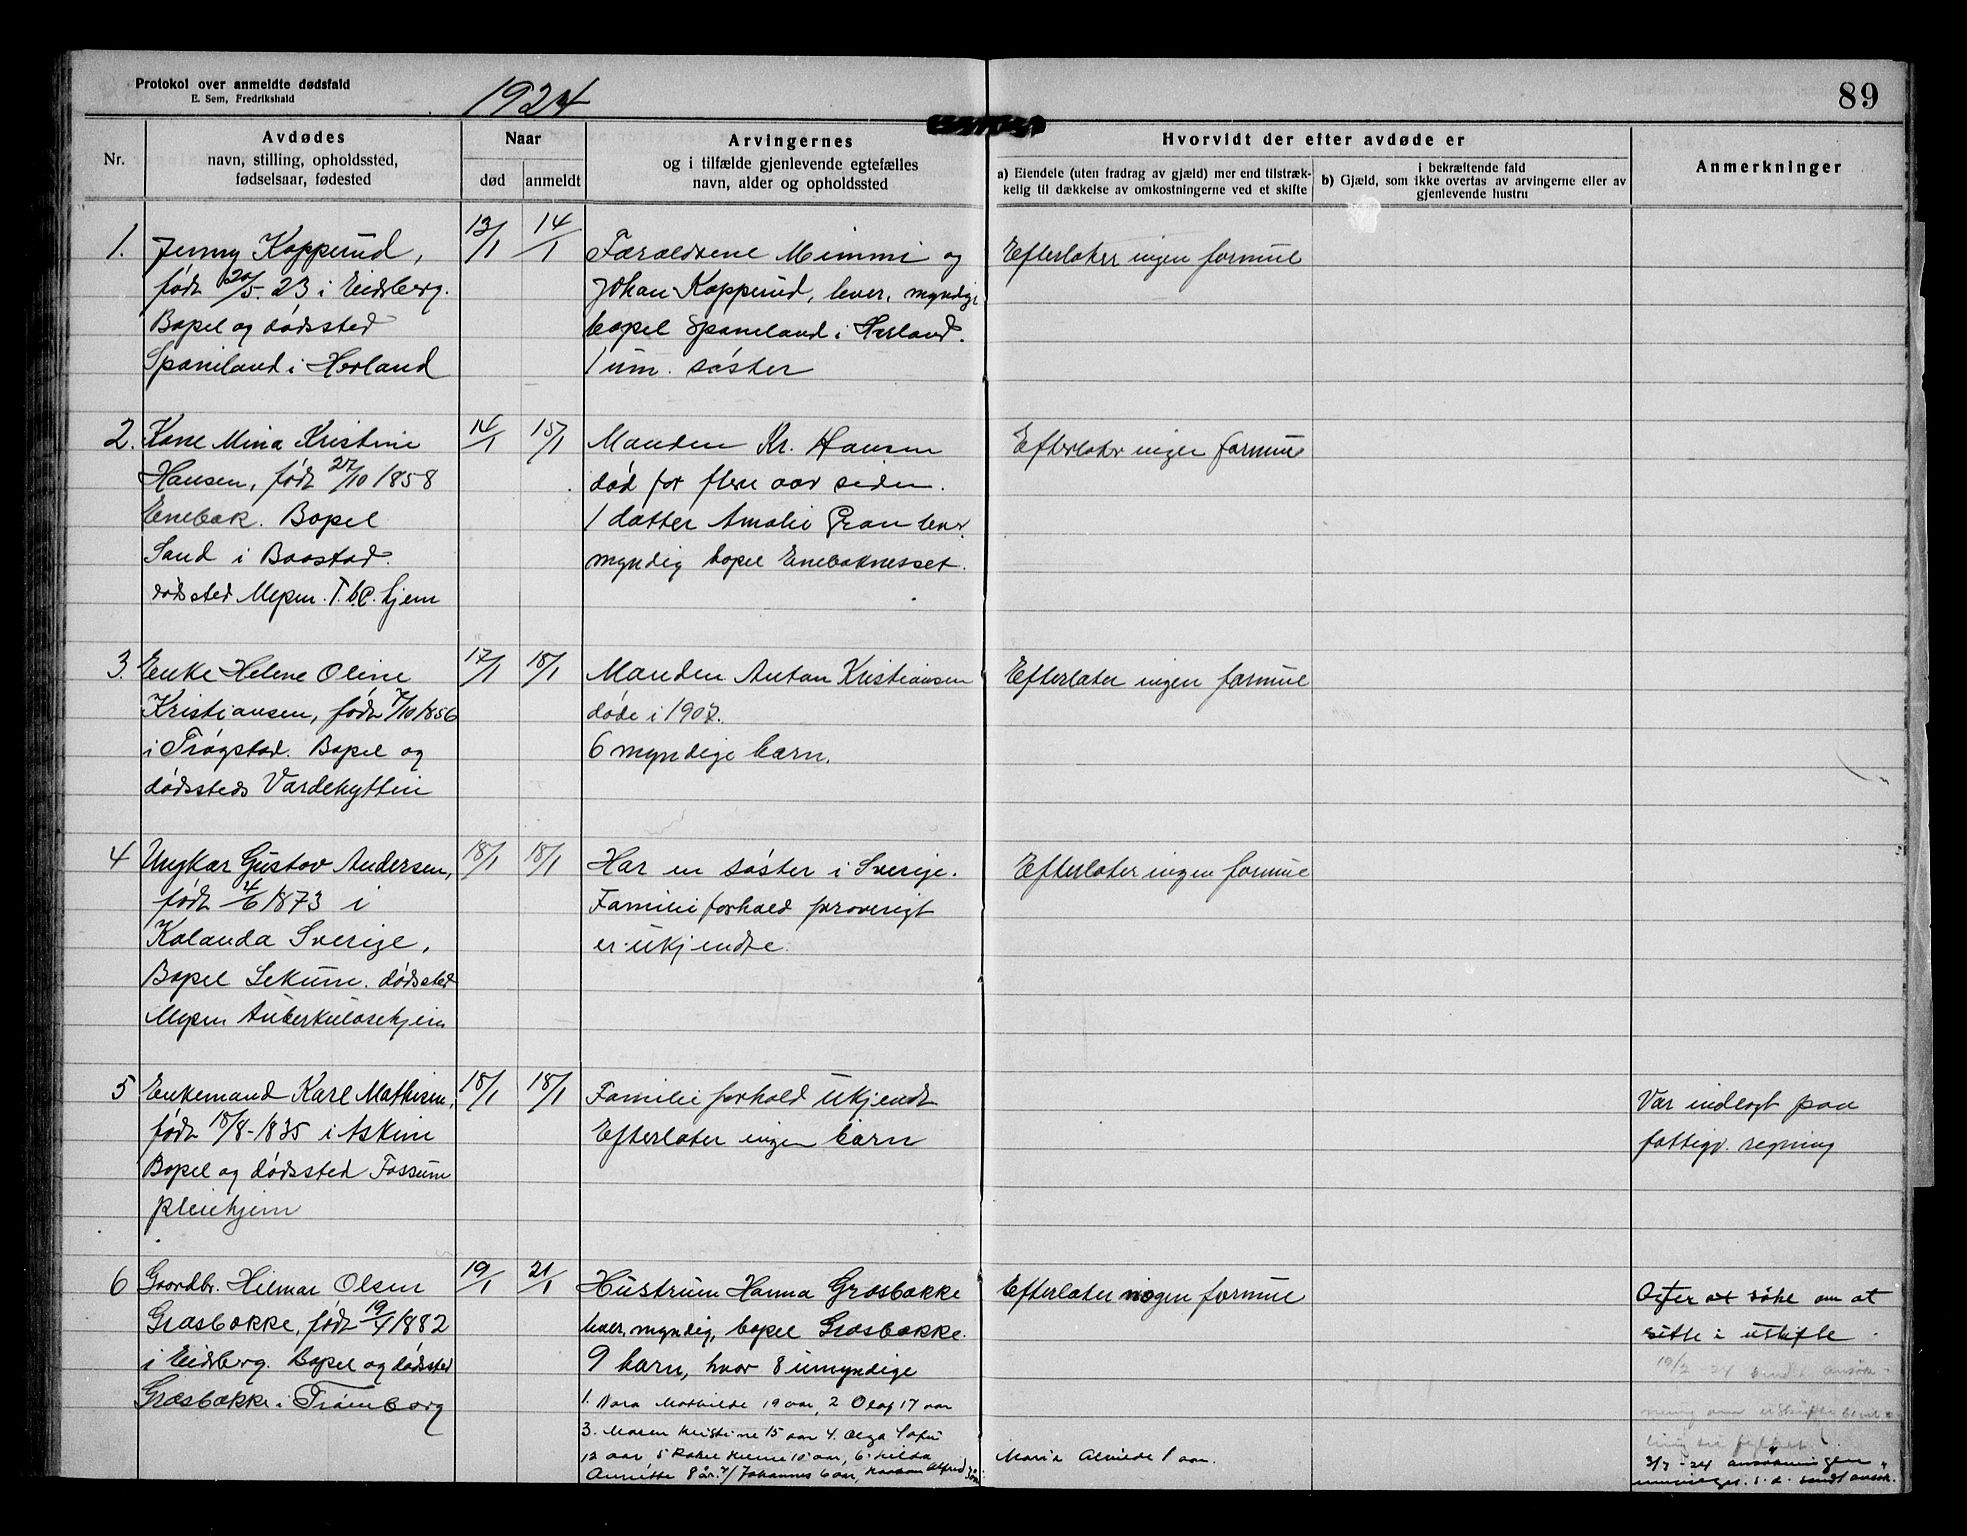 Protokol over anmeldte dødsfald
E. Sem, Fredrikshald
1924
89
Nr.
Avdødes
navn, stilling, opholdssted,
fødselsaar, fødested
Naar
død
anmeldt
Arvingernes
og i tilfælde gjenlevende egtefælles
navn, alder og opholdssted
Hvorvidt der efter avdøde er
a) Eiendele (uten fradrag av gjæld) mer end tilstræk-
kelig til dækkelse av omkostningerne ved et skifte
i bekræftende fald
b) Gjæld, som ikke overtas av arvingerne eller av
gjenlevende hustru
Anmerkninger
1.
Jenny Kopperud,
født 20/5. 23 i Eidsberg.
Bopel og dødssted
Spaneland i Herland
13/1
14/1
Foraldrene Mimmi og
Johan Kopperud, lever, myndige
bopel Spaneland i Herland.
1 um. søster
Efterlater ingen formue
2.
Kone Mina Kristine
Hansen, født 27/10 1858
Enebak. Bopel
Sand i Baastad.
dødssted Mysen T.b.c. hjem
14/1
15/1
Manden Kr. Hansen
død for flere aar siden.
1 datter Amalie Gran lever
myndig bopel Enebaknesset.
Efterlater ingen formue
3.
Enke Helene Oline
Kristiansen, født 7/10 1856
i Trøgstad. Bopel og
dødssteds Vardehytten
17/1
18/1
Manden Anton Kristiansen
døde i 1907.
6 myndige barn.
Efterlater ingen formue
4
Ungkar Gustav Andersen,
født 4/6 1873 i
Kolanda Sverige,
Bopel Sekum. dødssted
Mysen Tuberkulosehjem
18/1
18/1
Har en søster i Sverige.
Familieforhold forøvrigt
er ukjendte.
Efterlater ingen formue
5
Enkemand Karl Mathisen,
født 18/8-1835 i Askim
Bopel og dødssted Fossum
pleiehjem
18/1
18/1
Familieforhold ukjendt
Efterlater ingen barn
Var indlagt paa
fattigv. regning
6
Gaardbr. Hilmar Olsen
Græsbække, født 19/1 1882
i Eidsberg. Bopel og dødssted
Græsbække i Trømborg
19/1
21/1
Hustruen Hanna Græsbække
lever, myndig, bopel Græsbække.
9 barn, hvor 8 umyndige
1. Nora Mathilde 19 aar, 2 Olaf 17 aar
3. Maren Kristine 15 aar 4. Olga Sofie
12 aar, 5 Rakel Helene 10 aar, 6. Hilda
Annette 8 år. 7/ Johannes 6 aar, Alfred
Maria Alvilde 1 aar.
Efterlater nogen formue
Akter at søke om at
sitte i uskifte
19/2-24 sendt ansøk-
ning om uskifte
3/7-24 ansøkningen